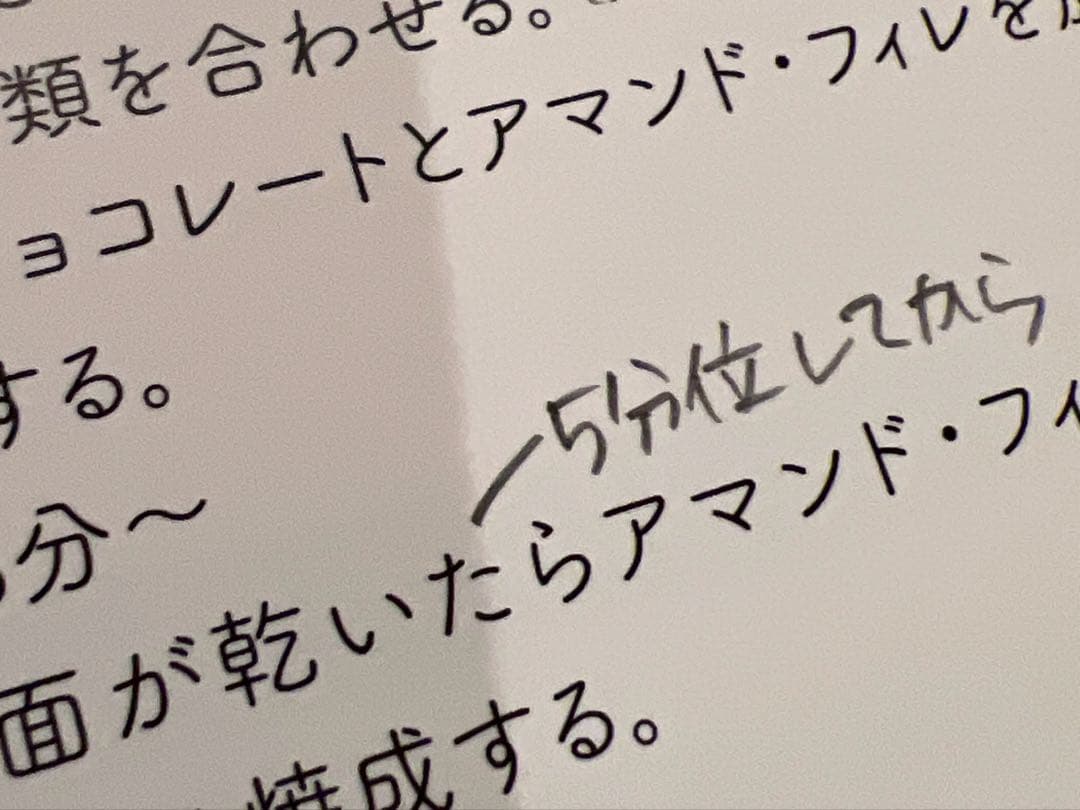 類を合わせる。
ョコレートとアマンド・フィレを
する。
分～
5分位してから
面が乾いたらアマンド・フィ
焼成する。